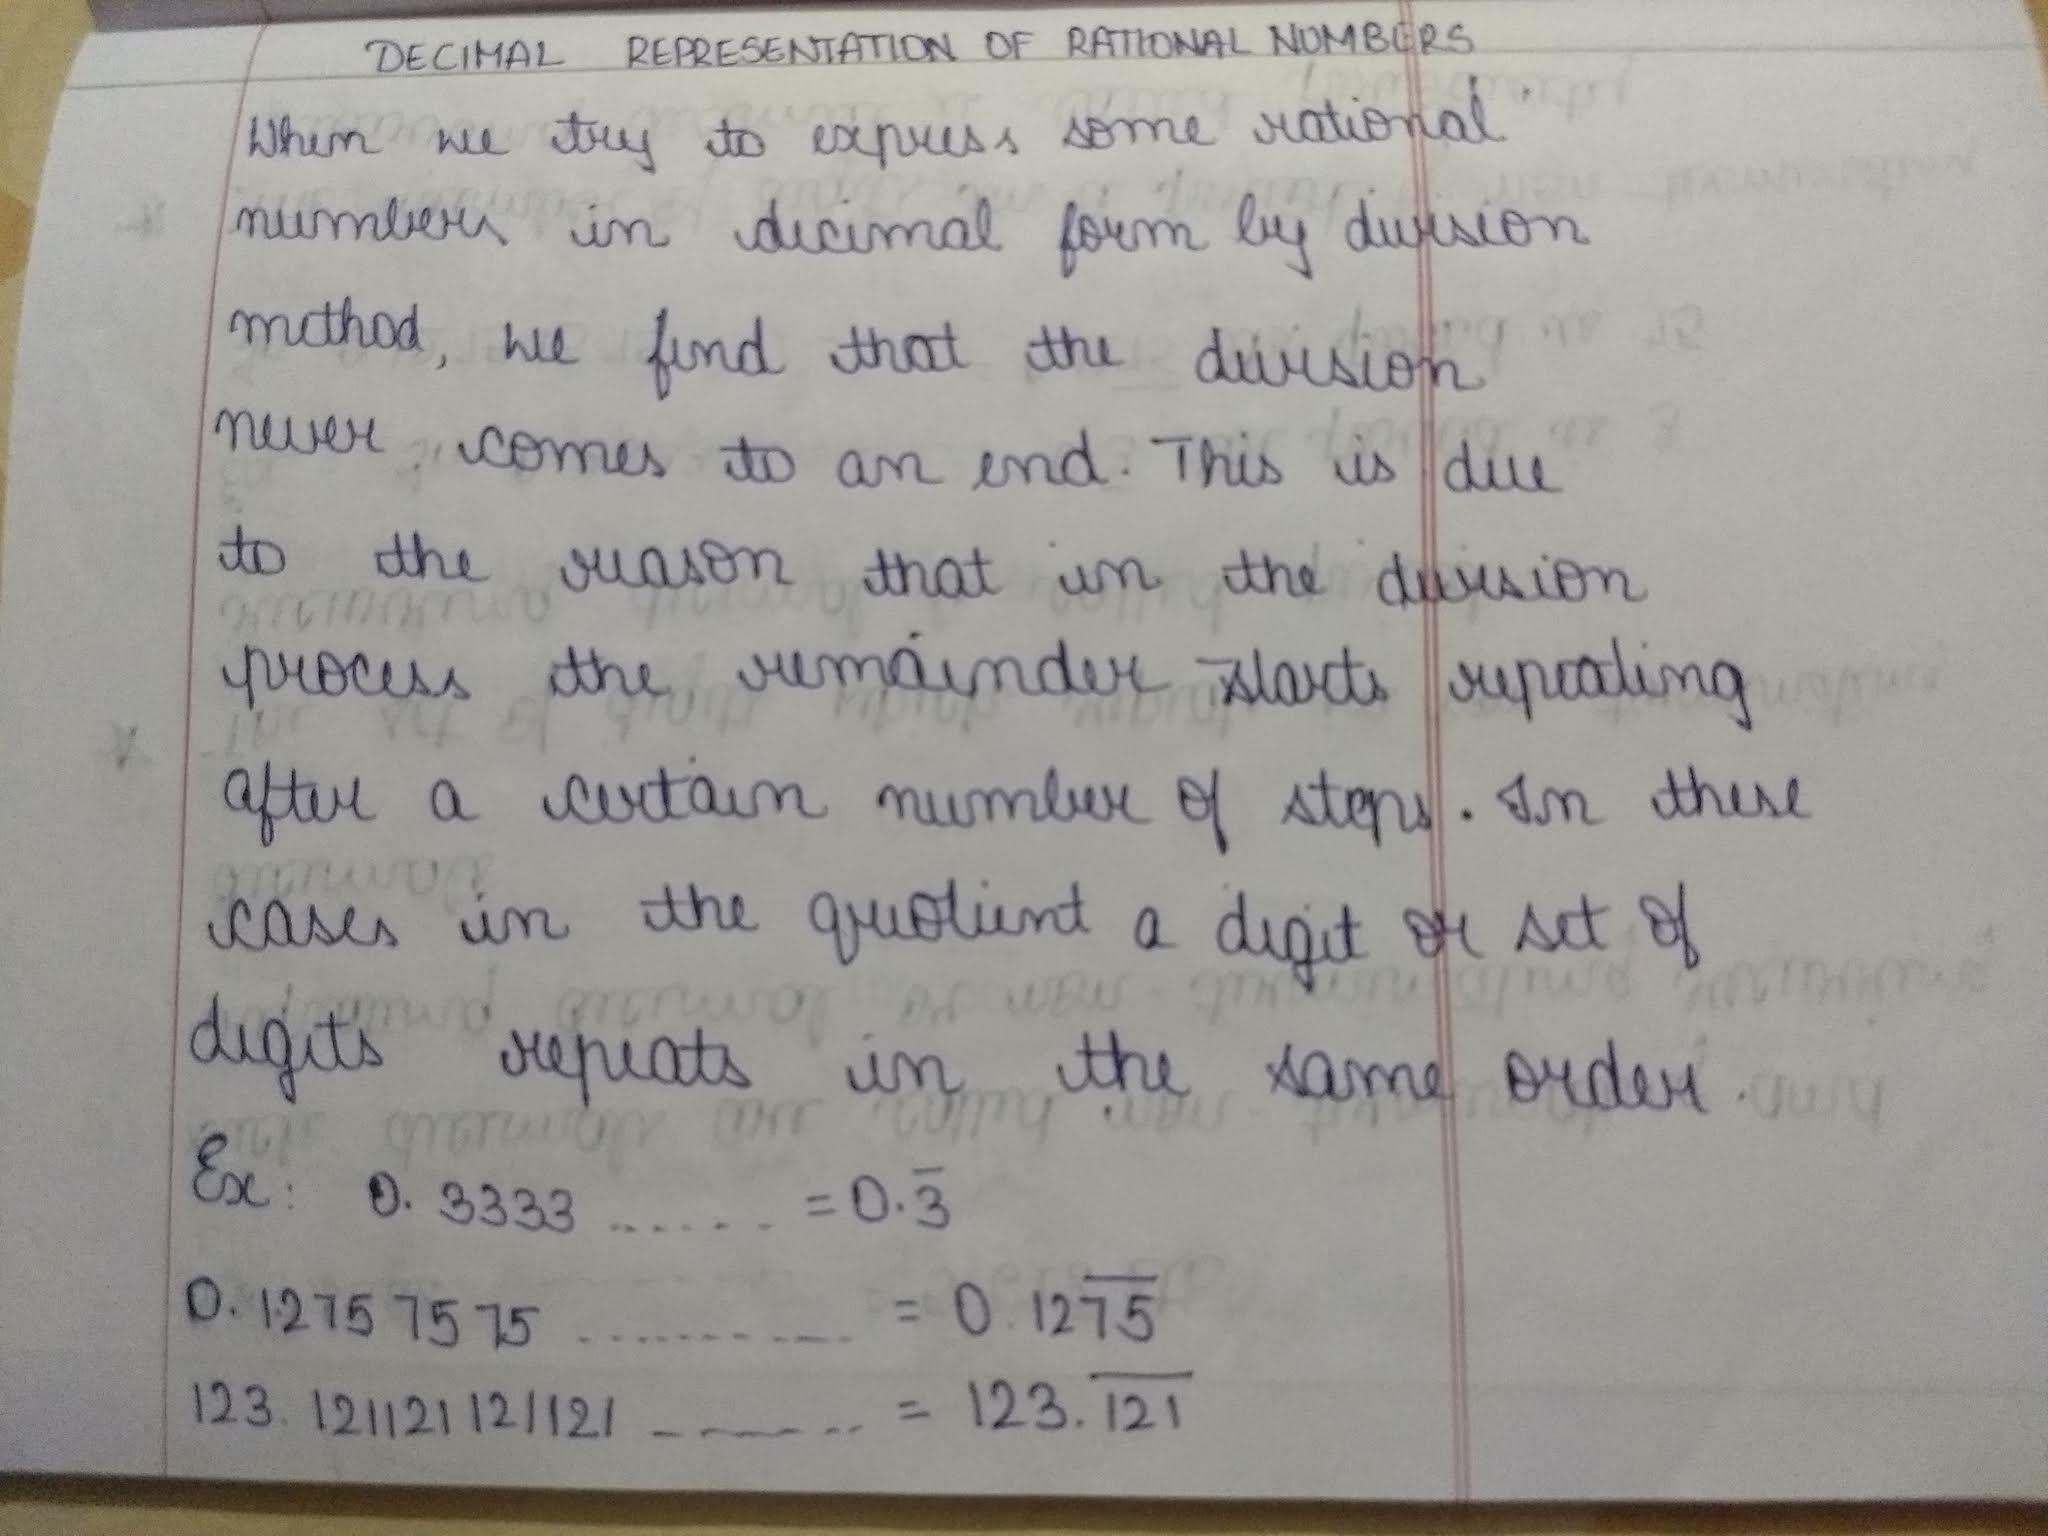 DECIMAL REPRESENTATION OF RATIONAL NUMBERS
When we try to express some rational
numbers in decimal form by division
method, we find that the division
never comes to an end. This is due
to the reason that in the division
process the remainder starts repeating
after a certain number of steps. In these
cases in the quotient a digit or set of
digits repeats in the same order.
Ex: 0.3333 ...... = 0.3̅
0.12757575 ........... = 0.127̅5̅
123.121121121121 ........ = 123.1̅2̅1̅